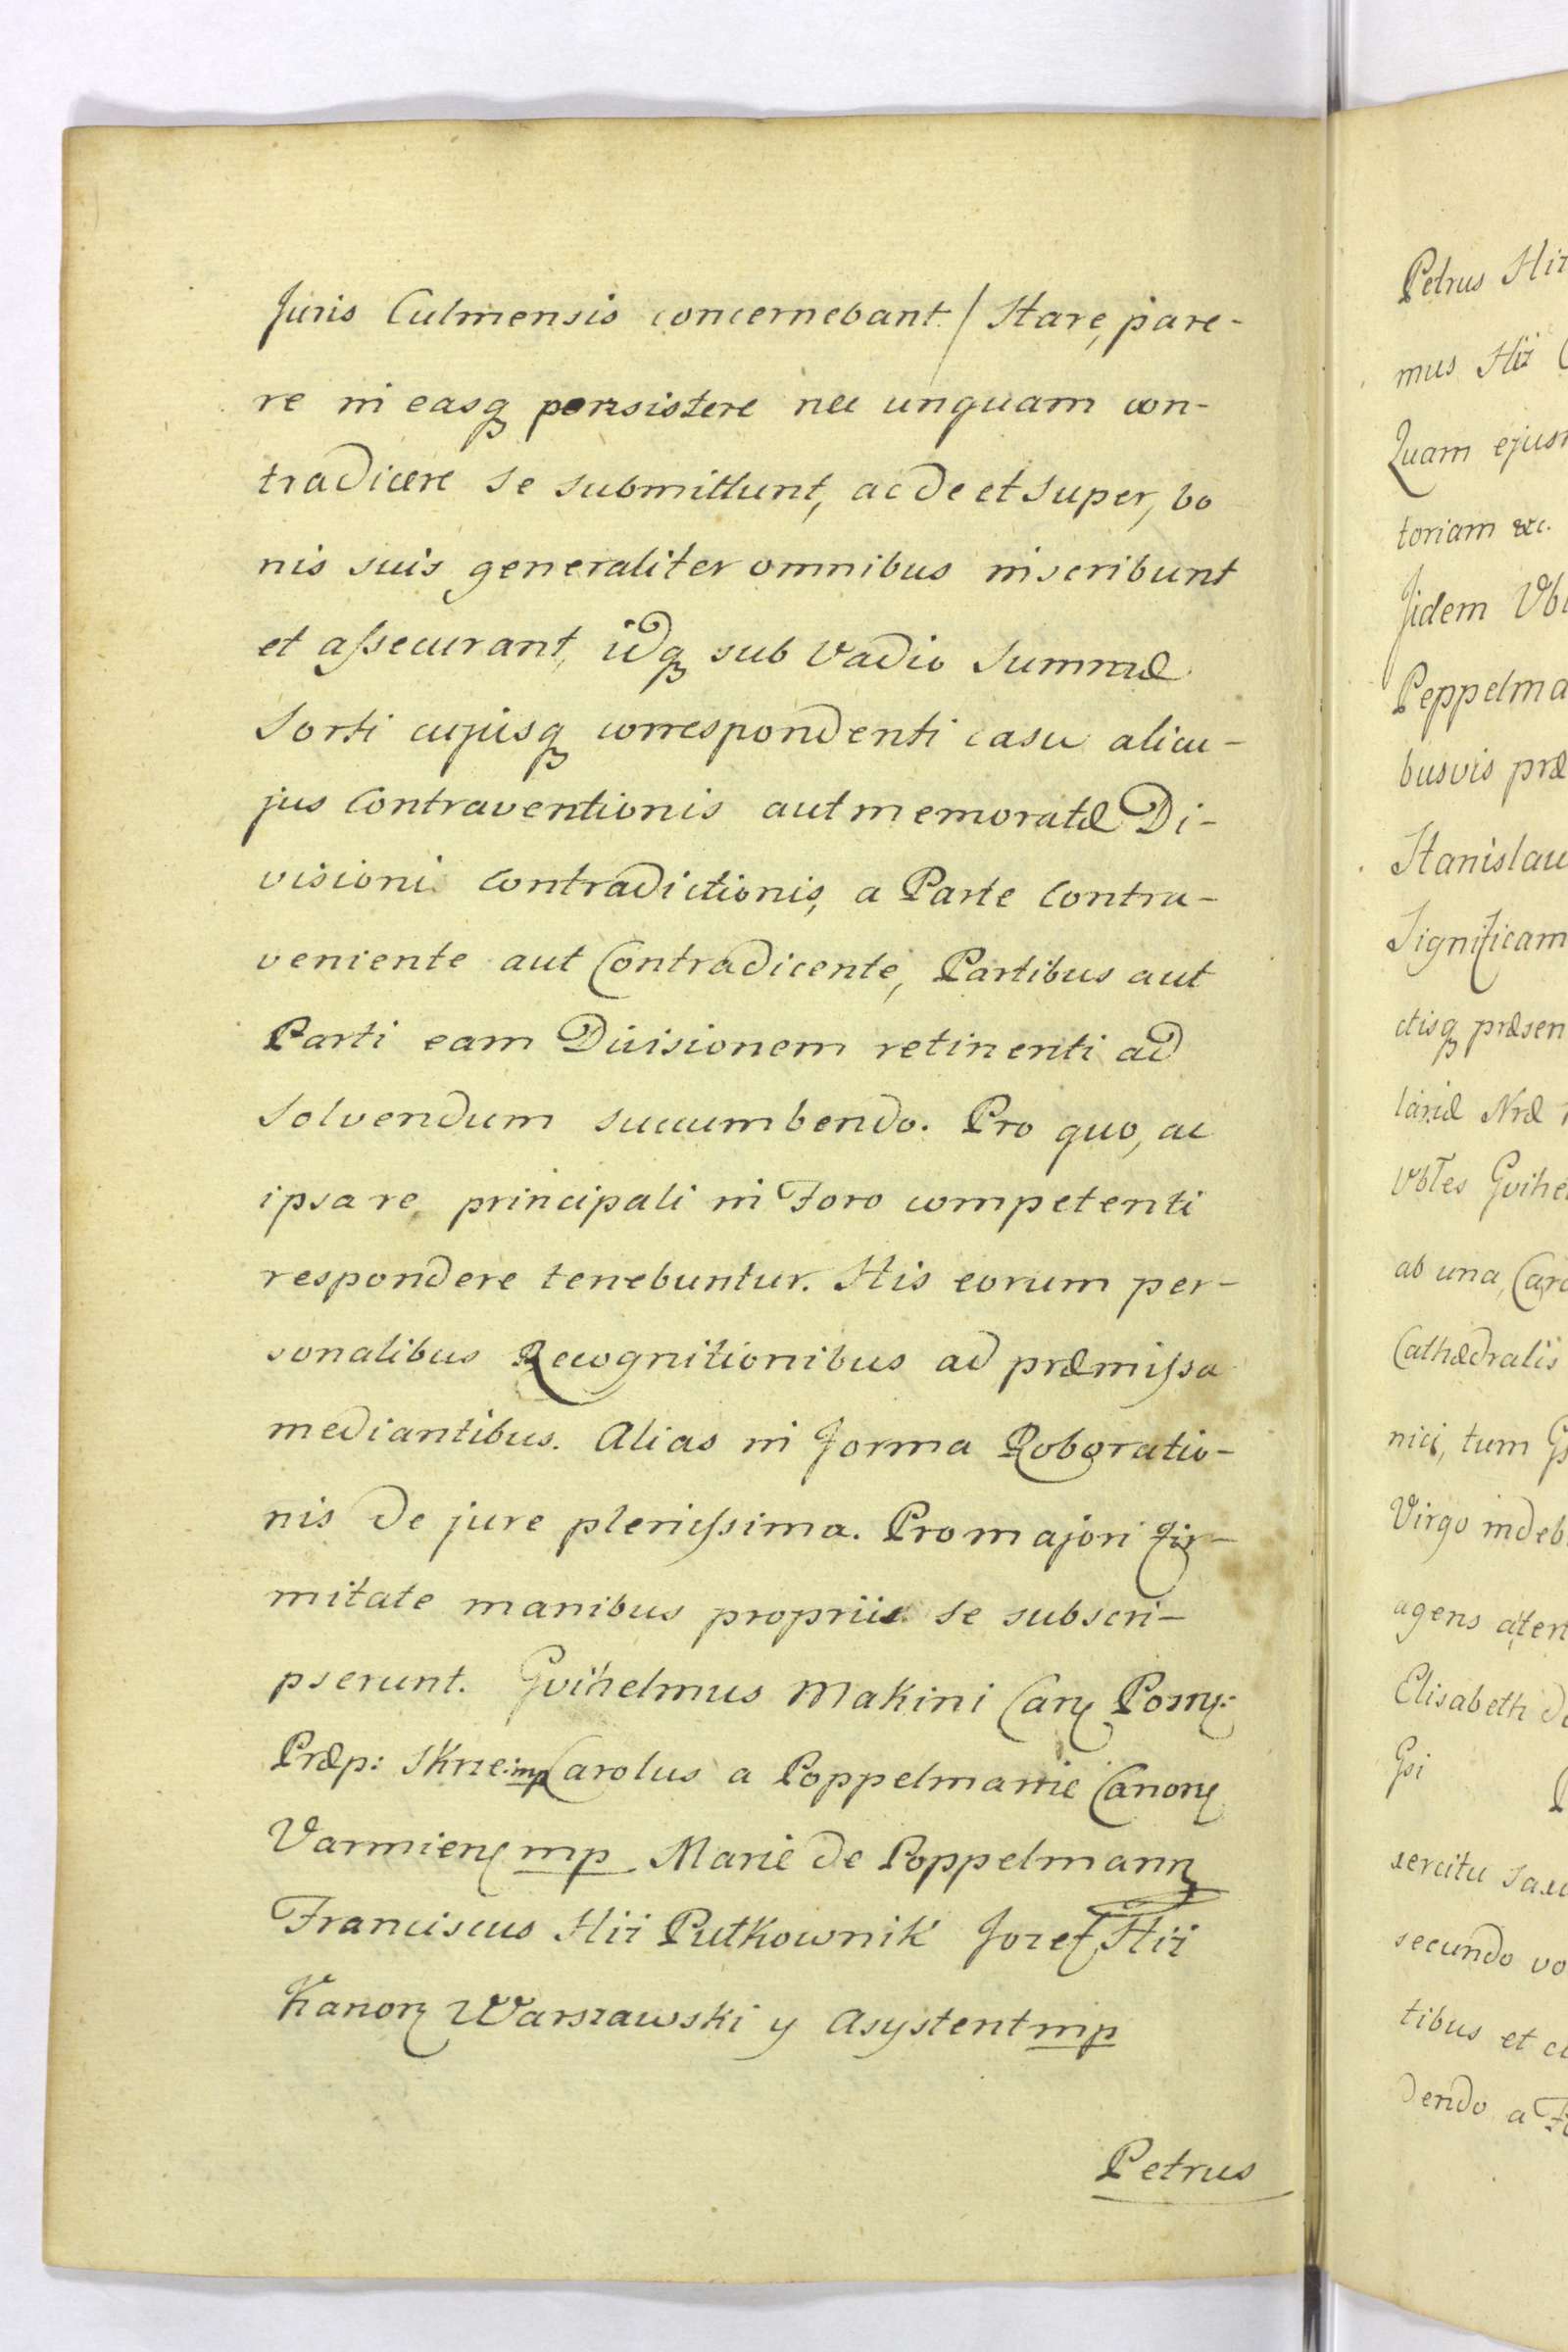 Juris Culmensis concernebant / Stare, pare-
re in easq persistere nec unquam con-
tradicere se submittunt, ac de et super, bo
nis suis generaliter omnibus inscribunt
et assecurant, idq sub vadio summæ
sorti cujusq correspondenti casu alicu-
jus contraventionis aut memoratæ Di-
visioni contradictionis, a Parte contra-
veniente aut Contradicente, Partibus aut
Parti eam Divisionem retinenti ad
solvendum succumbendo. Pro quo, ac
ipsa re principali in Foro competenti
respondere tenebuntur. His eorum per-
sonalibus Recognitionibus ad præmissa
mediantibus. Alias in forma Roboratio-
nis de jure plenissima. Pro majori fir-
mitate manibus propriis se subscri-
pserunt. Gvihelmus Makini Can Pozn:
Præp: Skrze: mp Carolus a Poppelmann Canon
Varmien mp Marie de Poppelmann
Franciscus Hiż Pułkownik Jozef Hiż
Kanon Warszawski y Asystent mp
Petrus
Petrus Hiż
mus Hiż
Quam ejus
toriam &c.
Jidem Vb
Peppelma
busvis præ
Stanislau
Significam
ctisq præsen
lariæ Nræ
Vbles Gvihe
ab una, Caro
Cathædralis
nici, tum
Virgo indeb
agens
Elisabeth de
Gsi
xercitu Sax
secundo vo
tibus et
dendo a